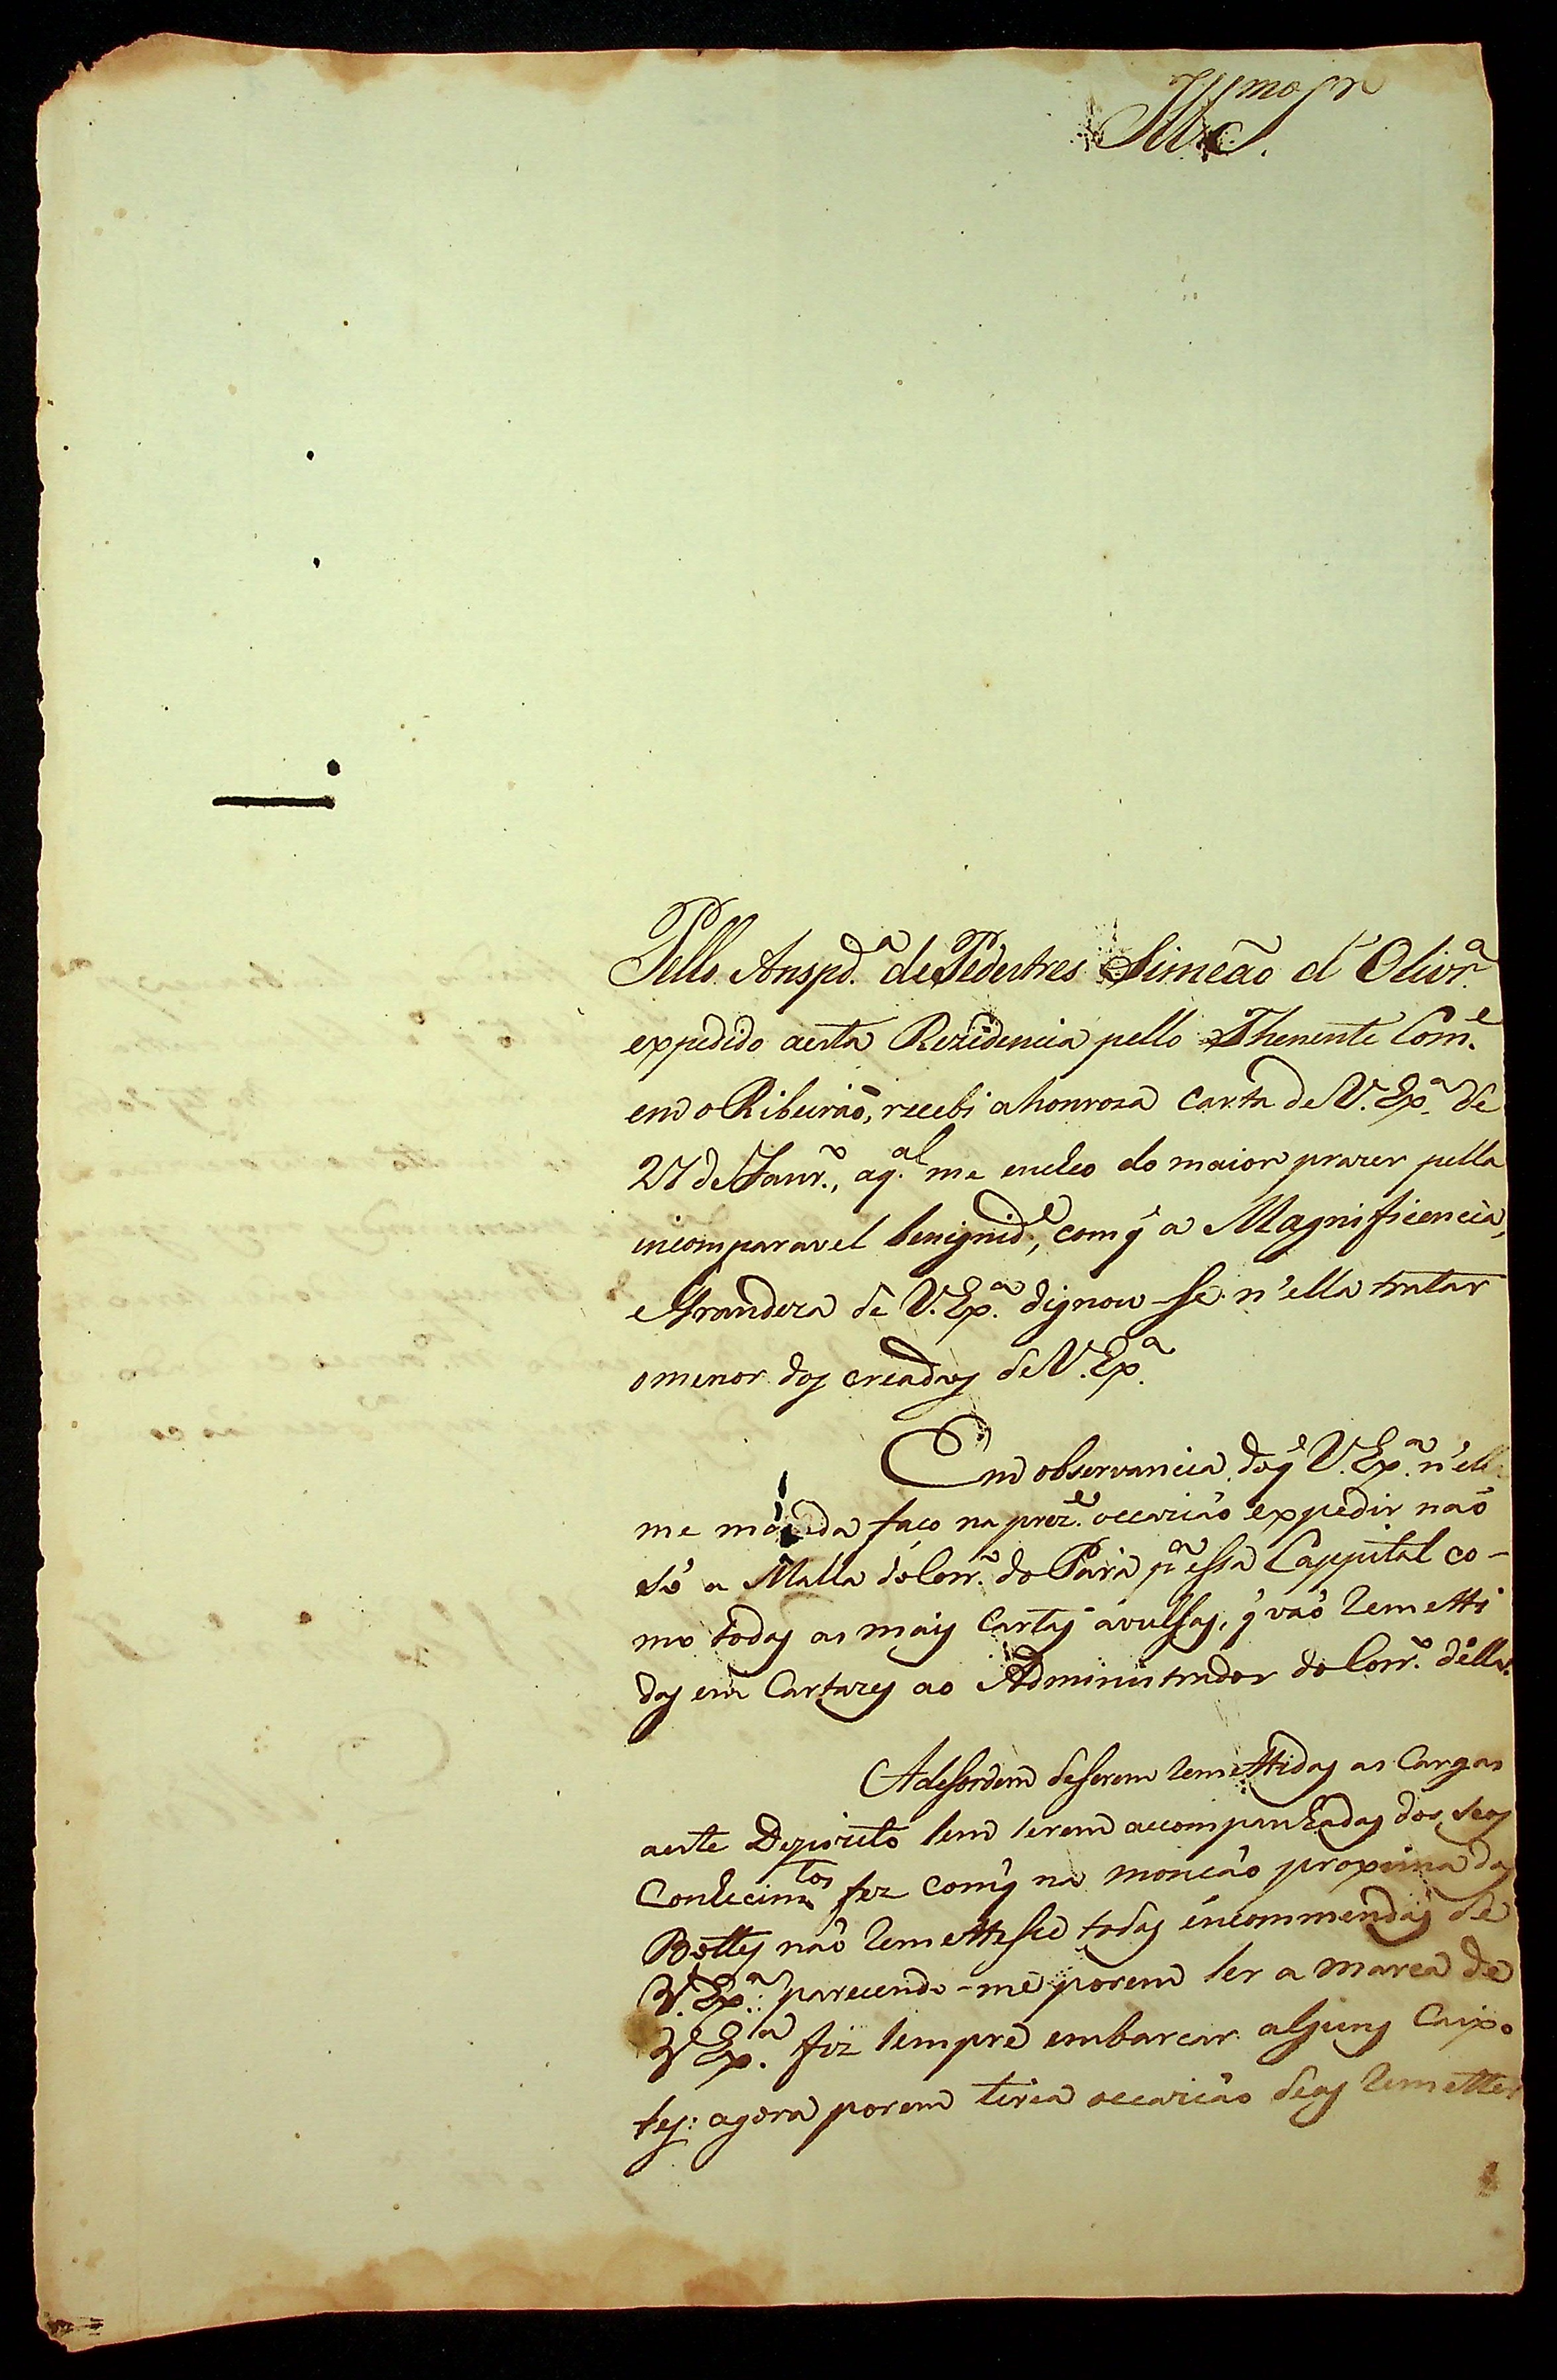 Ill.mo Sr
Pello Anspd.ª de Pedestres Simeão d'Olivr.ª
expedido aesta Rezidencia pello Thenente Com.e
em o Ribeirão, recebi ahonroza Carta de V. Ex.ª de
27 de Janr.o, aq.al me encheo do maior prazer pella
incomparavel benignid.e, com q̃ a Magnificencia,
e Grandeza de V. Ex.ª dignou-se n'ella tratar
omenor dos creados de V. Ex.ª
Em observancia doq̃ V. Ex.ª n'ella
me manda faço na prez.e occazião expedir não
só a Malla do Corr.o do Pará p.ª essa Cappital co-
mo todas as mais Cartas avulsas, q̃ vão remetti
das em Cartazes ao Administrador do Corr.o d'ella.
Adesordem deserem remettidas as Cargas
aeste Depozito sem serem accompanhadas dos seos
Conhecim.tos fez comq̃ na monção proxima dos
Bottes não remettesse todas éncommendas de
V. Ex.ª: parecendo-me porem ser a marca de
V Ex.ª fiz sempre embarcar alguns Caixo
tes: agora porem tirea occazião deos remetter